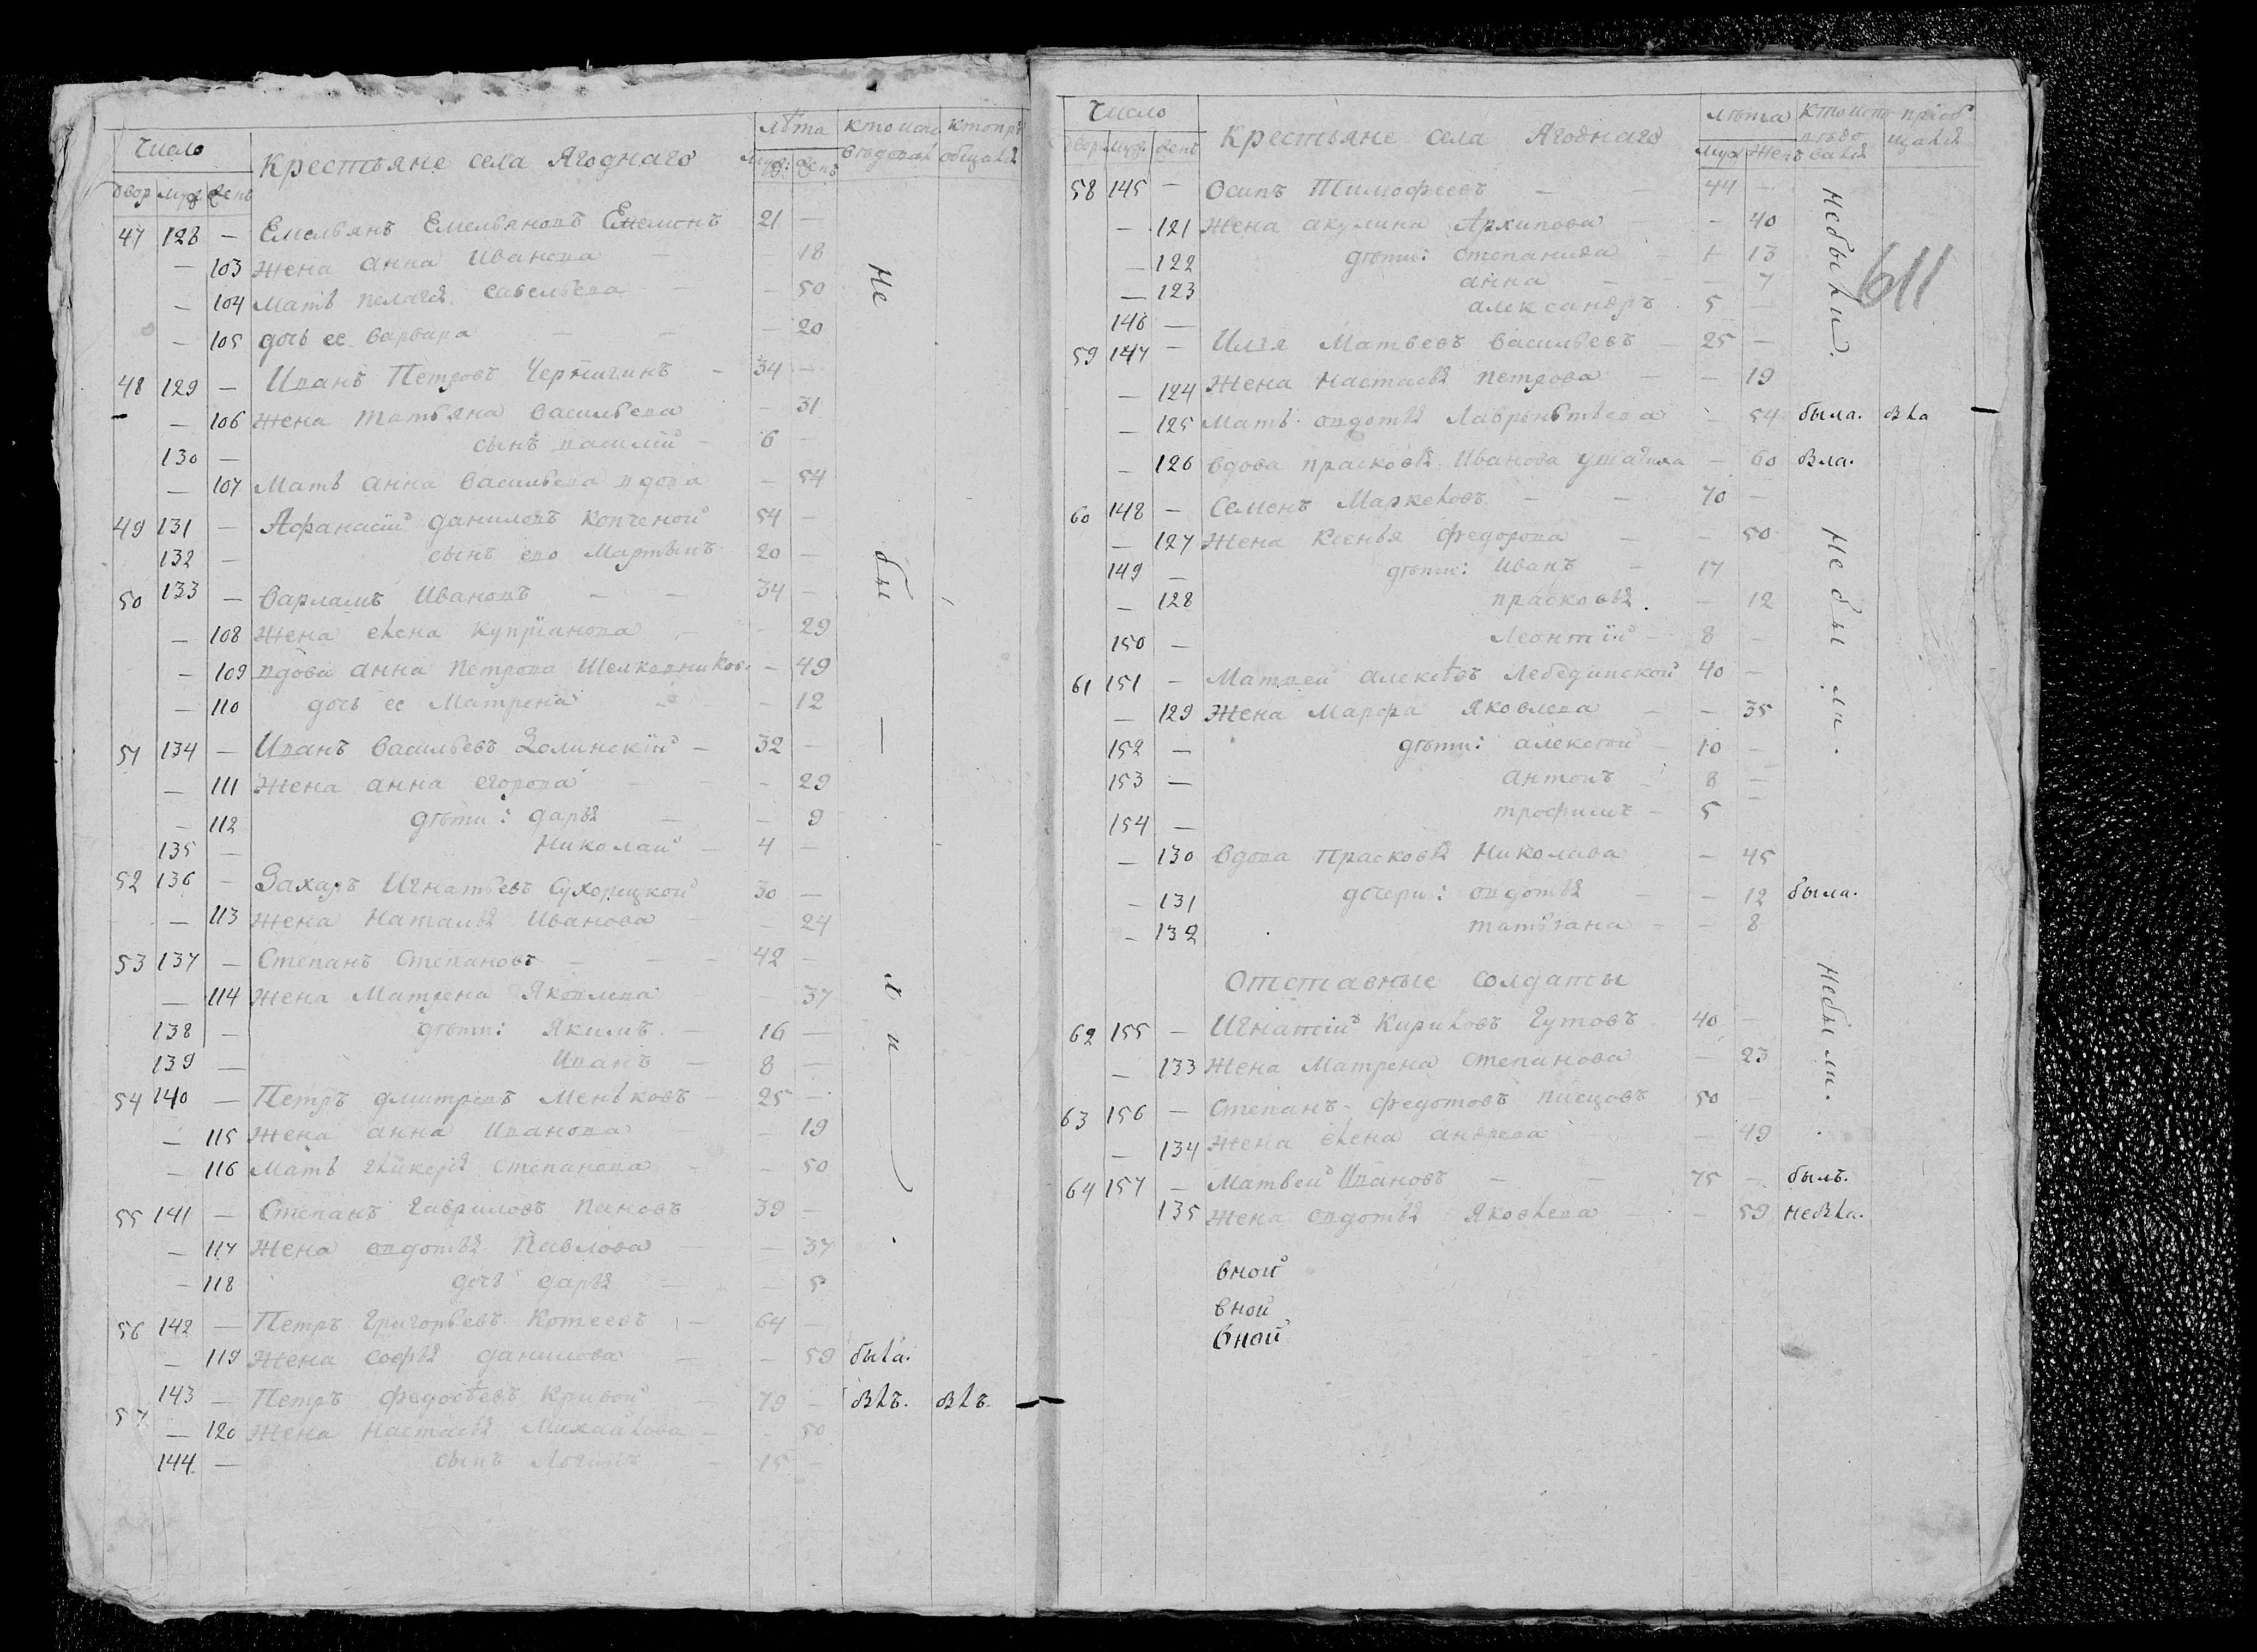 Число Крестьяне села Ягоднаго лѣта кто испо кто прі
вѣдовал общался
двор муж жень муж: жень
47 128 — Емельянъ Емельяновъ 21 —
— 103 жена анна Иванова — 18
— 104 мать пелагея савельева — — 50
— 105 дочь ее варвара — — — 20
48 129 — Иванъ Петровъ — 34 —
— 106 жена татьяна васильева — 31
130 — сынъ василій — 6 —
— 107 мать анна васильева вдова — 54
49 131 — Афанасій даниловъ копченой 54 —
132 — сынъ ево Мартынъ 20 —
50 133 — варламъ Ивановъ — — 34 —
— 108 жена елена Купріанова — — 29
— 109 вдова анна петрова — 49
— 110 дочь ее Матрена — 12
51 134 — Иванъ васильевъ Золинскій — 32 —
— 111 жена анна егорова — — 29
— 112 дѣти: дарья — — 9
135 — Николай — 4 —
52 136 — Захаръ Игнатьевъ Сухорецкой 30 —
— 113 жена Наталья Иванова — — 24
53 137 — Степанъ Степановъ — — — 42 —
— 114 жена Матрена Яковлева — 37
138 — дѣти: Якимъ — 16 —
139 — Иванъ — 8 —
54 140 — Петръ дмитревъ Меньковъ — 25 —
— 115 жена анна Иванова — 19
— 116 мать гликерья степанова — — 50
55 141 — Степанъ гавриловъ пановъ 39 —
— 117 жена овдотья Павлова — — 37
— 118 дочь дарья — — 5
56 142 — Петръ Григорьевъ Котеевъ — 64 —
— 119 жена софья данилова — — 59 была.
57 143 — Петръ федосѣевъ Кривой — 79 — былъ. былъ.
— 120 жена настасья Михайлова — 50
144 — сынъ Логинъ — 15 —
не бы — ли.
Число Крестьяне села Ягоднаго лѣта кто испо пріоб
вѣдо щался
двор муж. жень муж жень вался
611
58 145 — Осипъ Тимофеевъ — — 44 —
— 121 жена акулина Архипова — — 40
— 122 дѣти: степанида — 13
— 123 анна — — 7
146 — александръ 5 —
небыли.
59 147 — Илья Матвеевъ васильевъ — 25 —
— 124 жена настасья петрова — — 19
— 125 мать овдотья Лаврентьева — 54 была. была
— 126 вдова прасковья Иванова — 60 была.
60 148 — Семенъ Маркеловъ — — 70 —
— 127 жена ксенья федорова — — 50
149 — дѣти: Иванъ — 17
— 128 прасковья. — 12
150 — леонтій — 8 —
61 151 — Матвей алексѣевъ лебединской 40 —
— 129 жена Марфа Яковлева — — 35
152 — дѣти: алексѣй — 10 —
153 — антонъ — 8 —
154 — трофимъ — 5 —
небыли.
— 130 вдова Прасковья Николаева — 45
— 131 дочери: овдотья — — 12 была.
— 132 татьяна — — 8
Отставные солдаты
62 155 — Игнатій Кириловъ Гутовъ 40 —
— 133 жена Матрена степанова — 23
63 156 — степанъ федотовъ писцовъ 50 —
— 134 жена елена андреева — — 49
небыли.
64 157 — Матвей Ивановъ — — 75 — былъ.
135 жена овдотья Яковлева — — 59 небыла.
вной
вной
вной